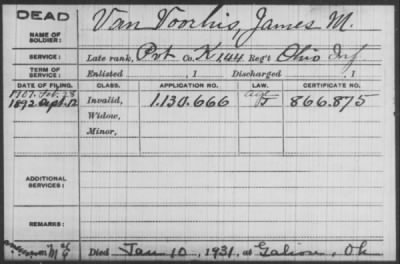 DEAD
NAME OF SOLDIER: Van Voorhis, James M.
SERVICE: Late rank, Pvt Co. K, 144 Reg't Ohio Inf
TERM OF SERVICE: Enlisted , 1 Discharged , 1
DATE OF FILING. CLASS. APPLICATION NO. LAW. CERTIFICATE NO.
1907. Feb. 28 Age
1892 Sept. 12 Invalid, 1.130.666 J 866.875
Widow,
Minor,
ADDITIONAL SERVICES:
REMARKS:
Died Jan 10, 1931, at Galion, Oh